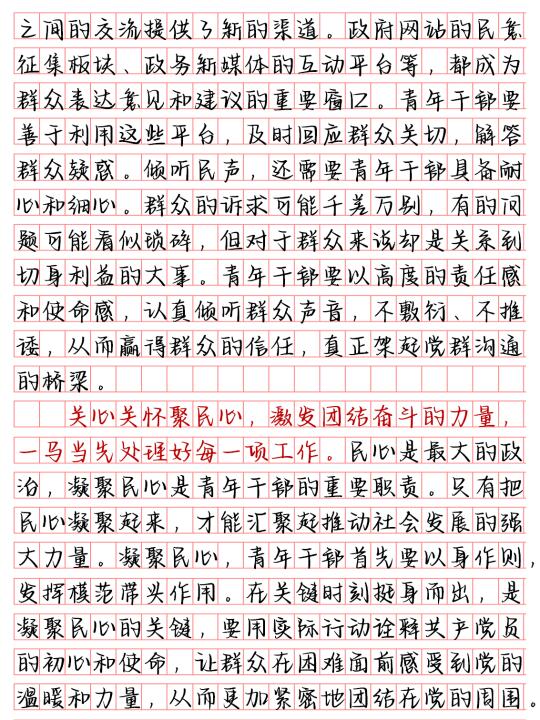 之间的交流提供了新的渠道。政府网站的民意
征集板块、政务新媒体的互动平台等，都成为
群众表达意见和建议的重要窗口。青年干部要
善于利用这些平台，及时回应群众关切，解答
群众疑惑。倾听民声，还需要青年干部具备耐
心和细心。群众的诉求可能千差万别，有的问
题可能看似琐碎，但对于群众来说却是关系到
切身利益的大事。青年干部要以高度的责任感
和使命感，认真倾听群众声音，不敷衍、不推
诿，从而赢得群众的信任，真正架起党群沟通
的桥梁。
关心关怀聚民心，激发团结奋斗的力量，
一马当先处理好每一项工作。民心是最大的政
治，凝聚民心是青年干部的重要职责。只有把
民心凝聚起来，才能汇聚起推动社会发展的强
大力量。凝聚民心，青年干部首先要以身作则，
发挥模范带头作用。在关键时刻挺身而出，是
凝聚民心的关键，要用实际行动诠释共产党员
的初心和使命，让群众在困难面前感受到党的
温暖和力量，从而更加紧密地团结在党的周围。